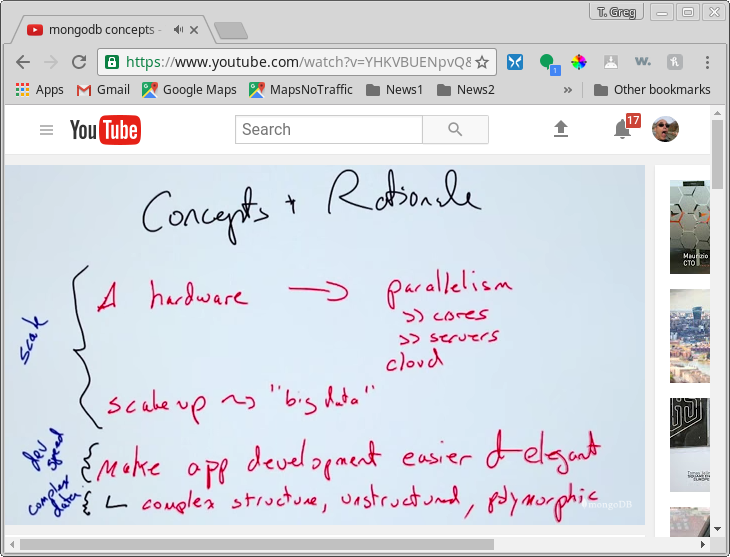 T. Greg
mongodb concepts -
https://www.youtube.com/watch?v=YHKVBUENpvQ&
1
w.
Apps Gmail Google Maps MapsNoTraffic News1 News2 » Other bookmarks
YouTube
Search
17
Concepts + Rationale
Δ hardware → parallelism
>> cores
>> servers
cloud
scale
scale up ~> "big data"
dev speed
Make app development easier & elegant
complex data
complex structure, unstructured, polymorphic
mongoDB
Maurizio
CTO